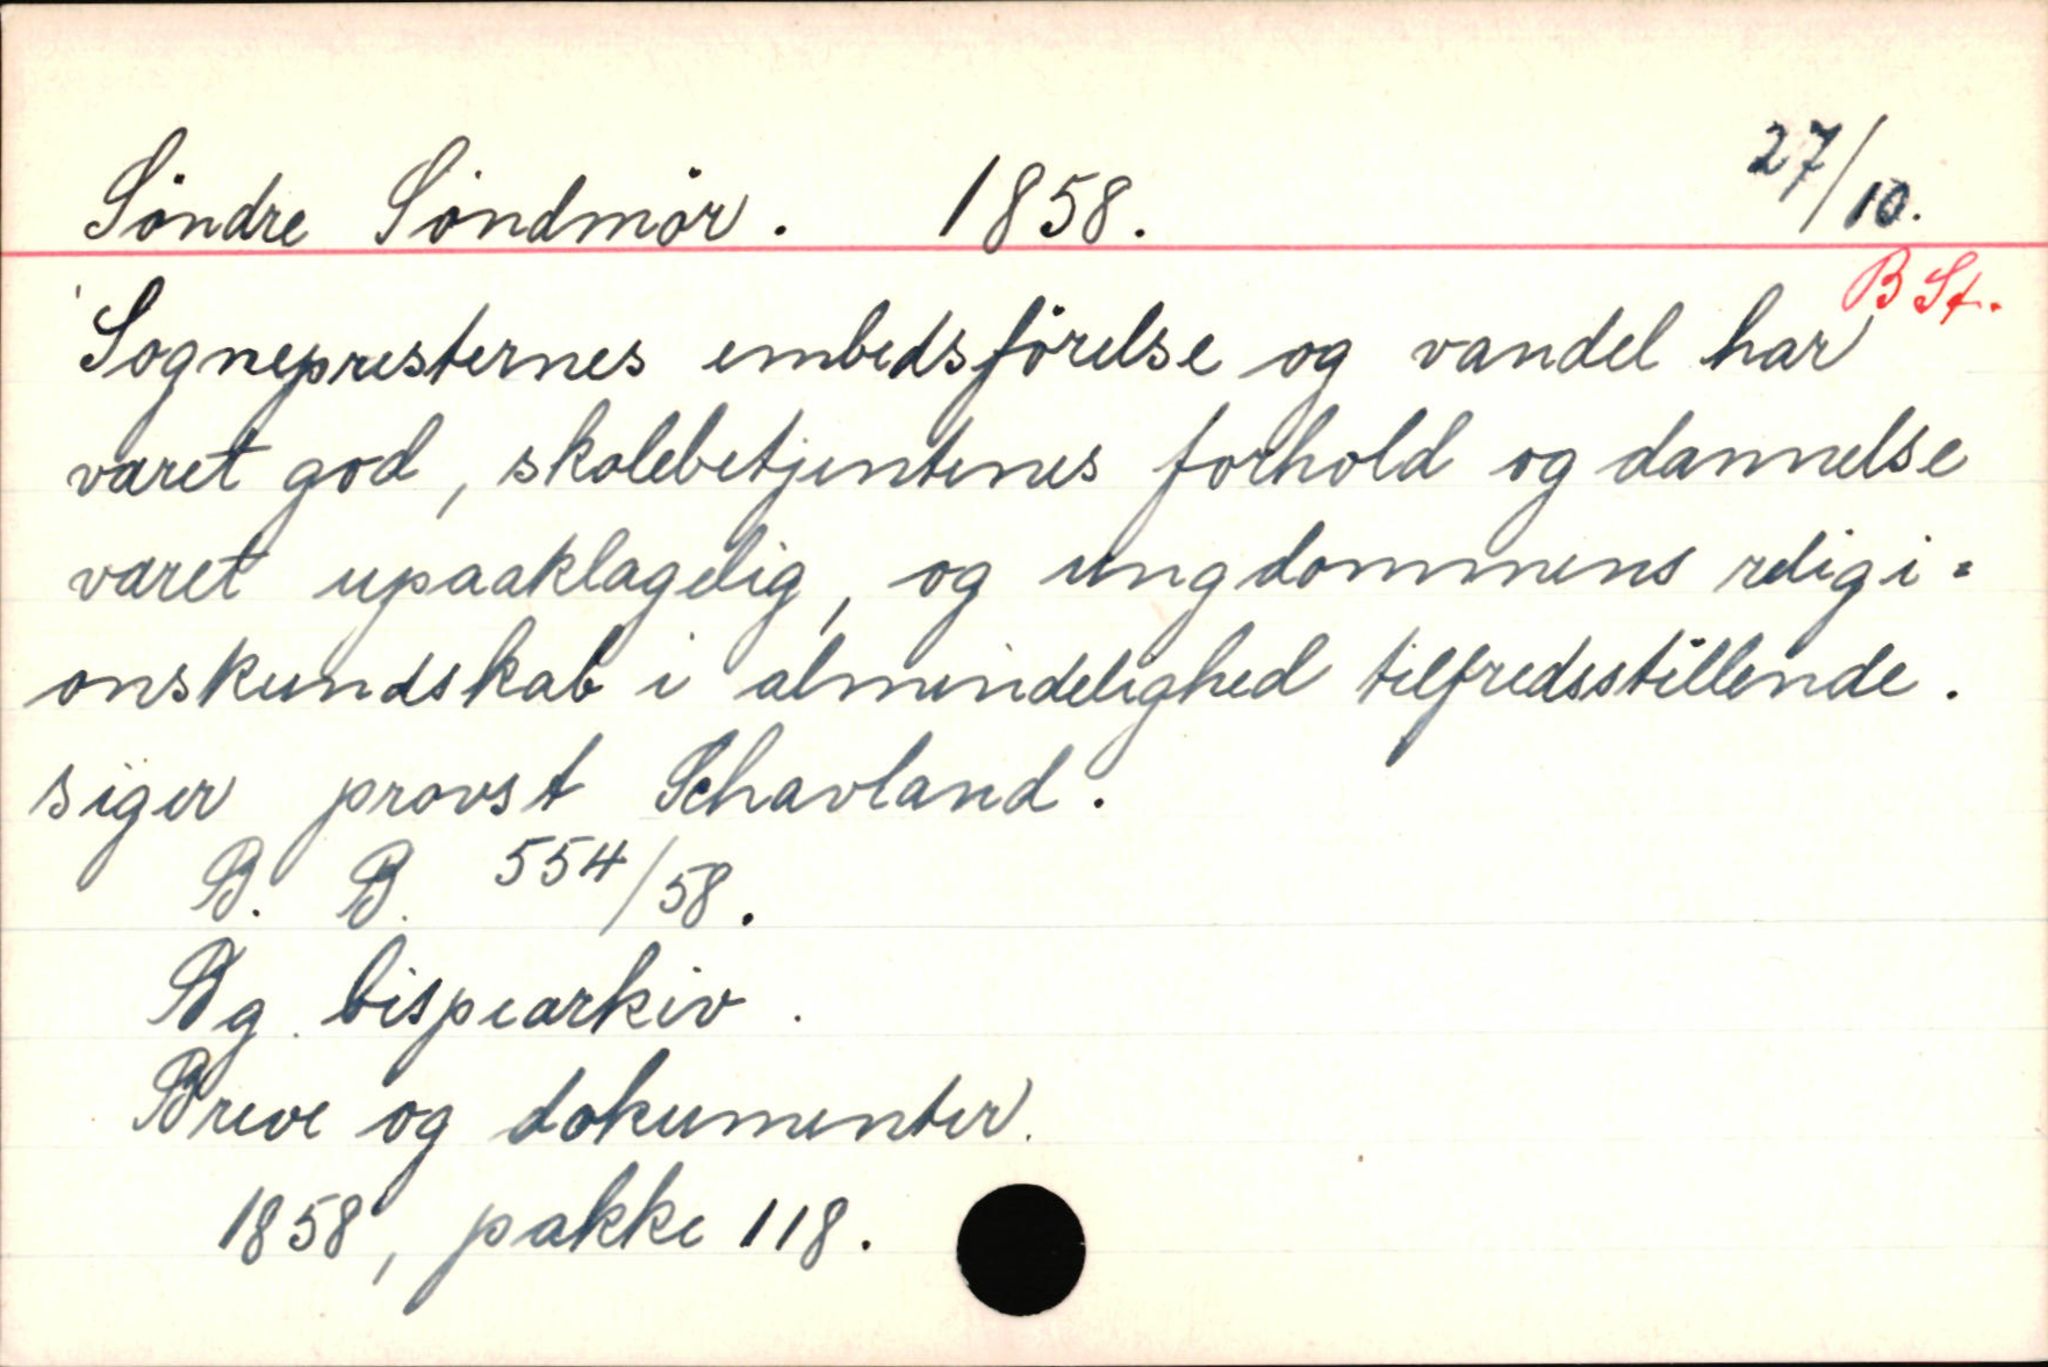 Söndre Söndmör. 1858. 27/10.
B St.
Sognepresternes embedsförelse og vandel har
været god, skolebetjentenes forhold og dannelse
været upaaklagelig, og ungdommens religi=
onskundskab i almindelighed tilfredsstillende.
siger provst Schavland.
B. B. 554/58.
Bg. bispearkiv.
Breve og dokumenter.
1858, pakke 118.